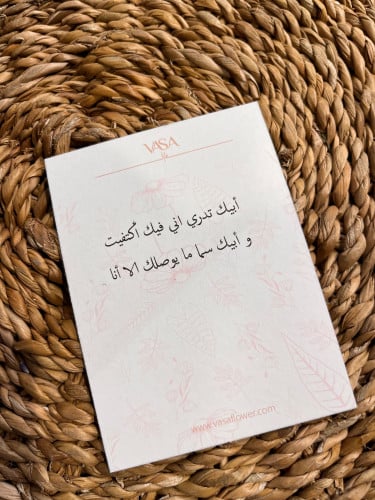 VASA
أبيك تدري اني فيك أكتفيت
و أبيك سما ما يوصلك الا أنا
www.vasaflower.com